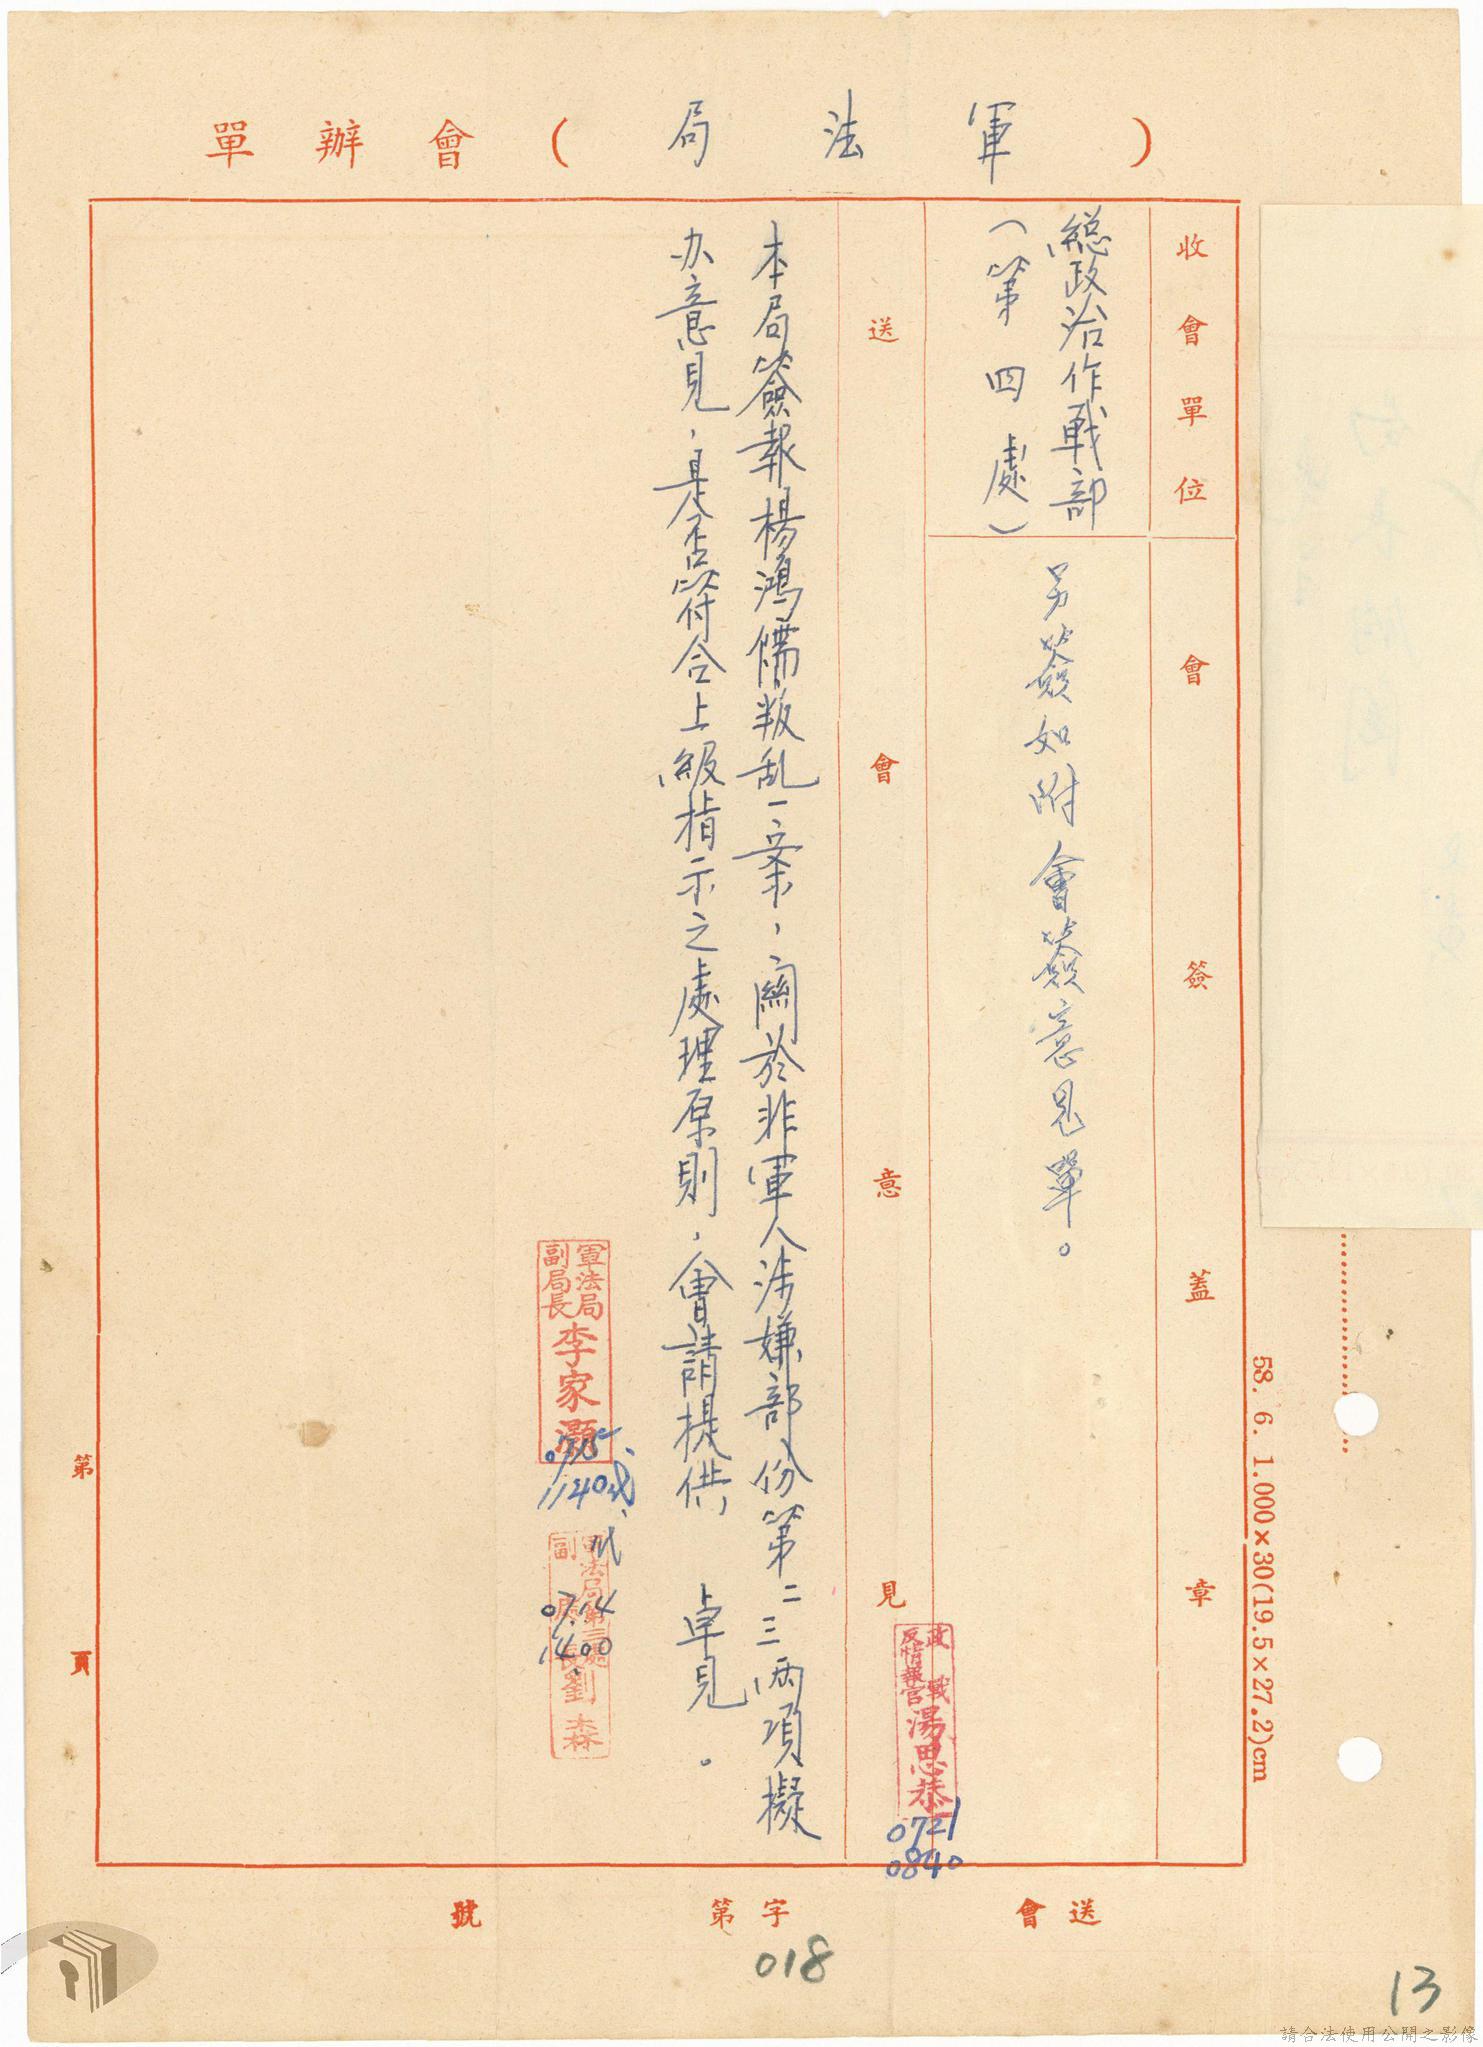 （軍法局）會辦單
收會單位
會簽蓋章
總政治作戰部
（第四處）
另簽如附會簽意見單。
送會意見
本局簽報楊鴻儒叛乱一案，關於非軍人涉嫌部份第二三兩項擬
办意見，是否符合上級指示之處理原則，會請提供　卓見。
政戰
反情報官
湯思恭
0721
0840
軍法局
副局長
李家灝
0715
1140
軍法局第三處
副處長
劉森
0714
1400
第　頁
送會　字第　號
018
13
58. 6. 1.000×30(19.5×27.2)cm
請合法使用公開之影像